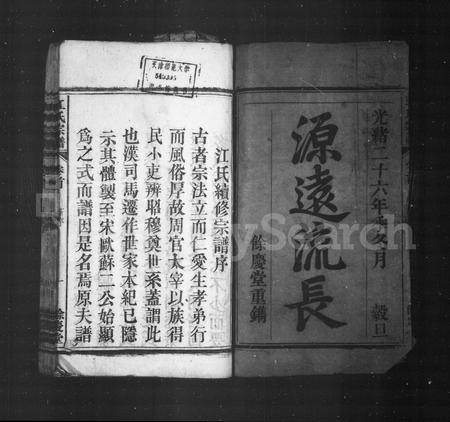 光緒二十六年 月 穀旦
源遠流長
餘慶堂重鐫
江氏續修宗譜序
古者宗法立而仁愛生孝弟行
而風俗厚故周官太宰以族得
民小吏辨昭穆奠世系蓋謂此
也漢司馬遷作世家本紀已隱
示其體製至宋歐蘇二公始顯
為之式而譜因是名焉原夫譜
江氏宗譜
餘慶堂
天津師範大學
MySearch